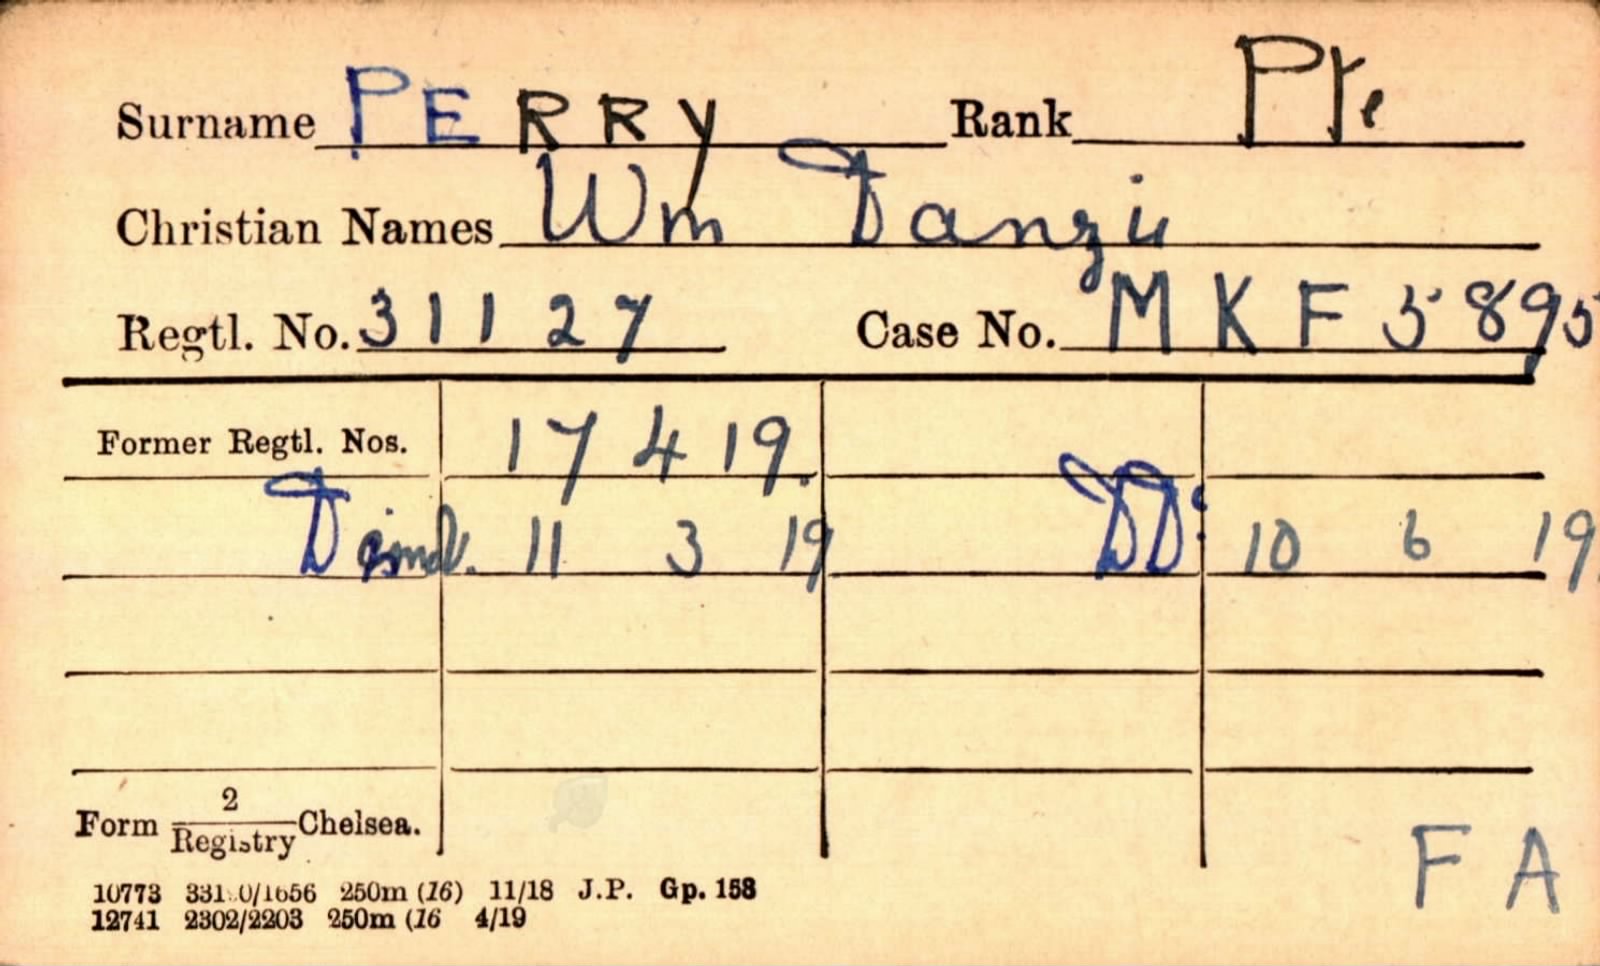 Surname PERRY Rank Pte
Christian Names Wm Danzie
Regtl. No. 31127 Case No. MKF 5895
Former Regtl. Nos. 17 4 19.
11 3 19 DD: 10 6 19.
Form 2/Registry Chelsea.
F A
10773 250m (16) 11/18 J.P. Gp. 158
12741 2302/2203 250m (16 4/19